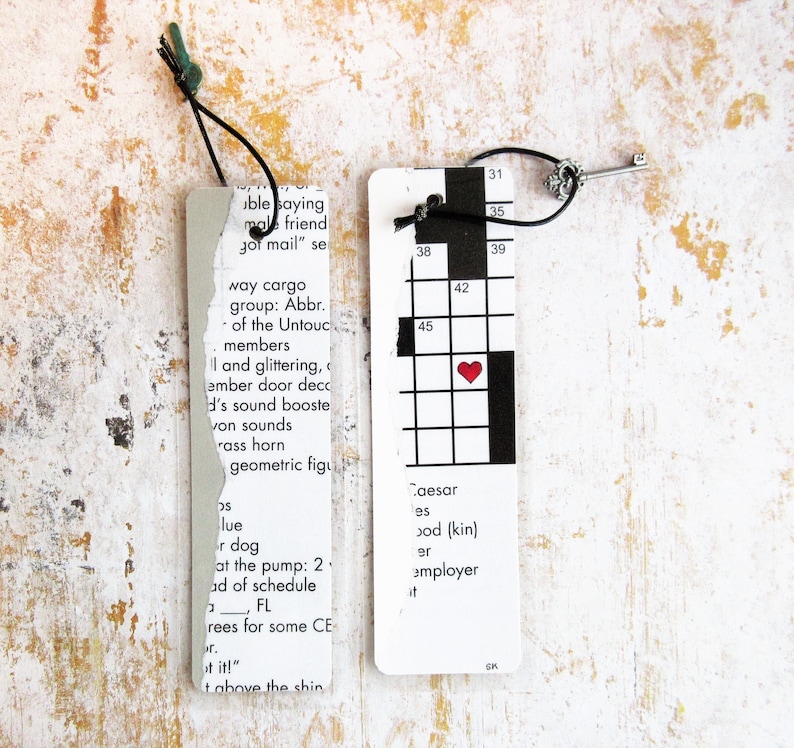 uble saying
male friend
got mail" se
way cargo
group: Abbr.
r of the Untouc
. members
ll and glittering,
ember door deco
d's sound booste
von sounds
rass horn
geometric figu
os
lue
or dog
at the pump: 2
ad of schedule
a ___, FL
rees for some CE
or.
ot it!"
t above the ship
31
35
38 39
42
45
Caesar
es
ood (kin)
er
employer
it
SK